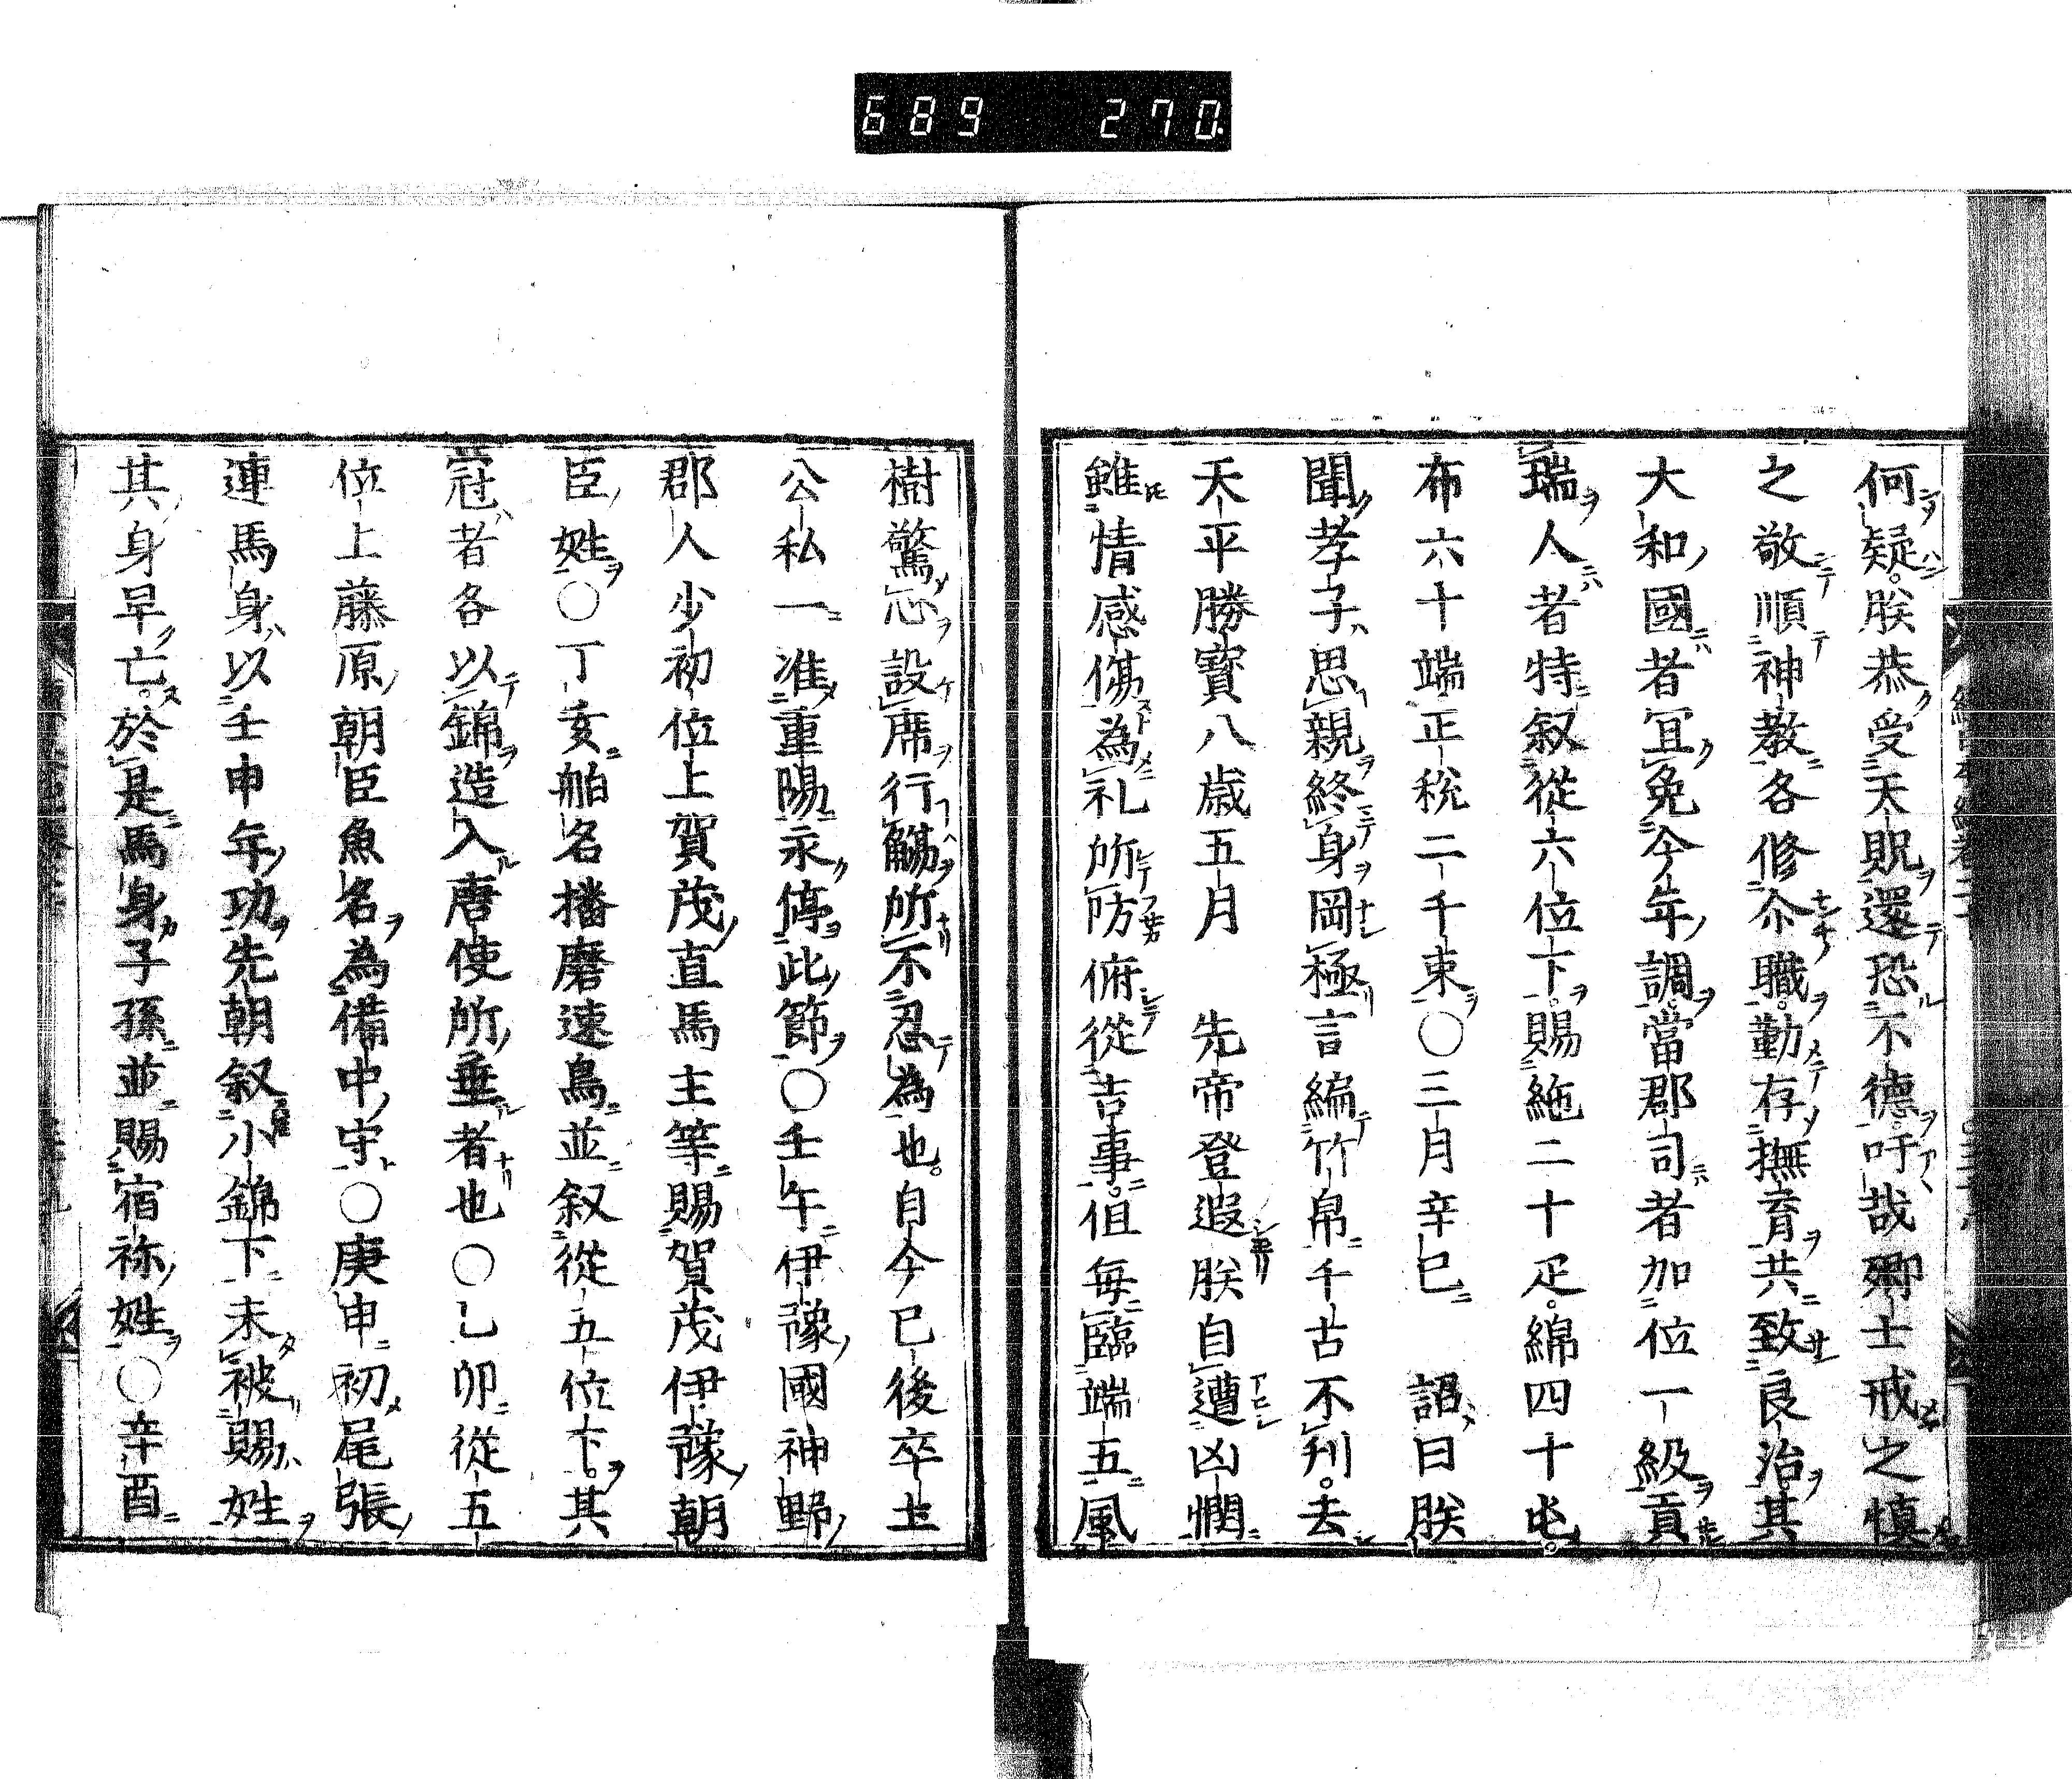 689 270
何疑。朕恭受天貺還恐不德吁哉卿士戒之慎
之敬順神教各修尒職。勤存撫育共致良治。其
大和國者冝免今年調。當郡司者加位一級貢
瑞人者特叙從六位下。賜絁二十疋。綿四十屯。
布六十端正稅二千束〇三月辛巳 詔曰朕
聞孝子思親終身罔極言編竹帛千古不刊。去
天平勝寶八歲五月 先帝登遐朕自遭凶憫
雖情感傷為礼所防俯從吉事。但每臨端五風
樹驚心設席行觴所不忍為也。自今已後卒土
公私一准重陽永停此節〇壬午伊豫國神野
郡人少初位上賀茂直馬主等賜賀茂伊豫朝
臣姓〇丁亥舶名播磨速鳥並叙從五位下。其
冠者各以錦造入唐使所垂者也〇乙卯從五
位上藤原朝臣魚名為備中守〇庚申初尾張
連馬身以壬申年功先朝叙小錦下未被賜姓
其身早亡。於是馬身子孫並賜宿祢姓〇辛酉